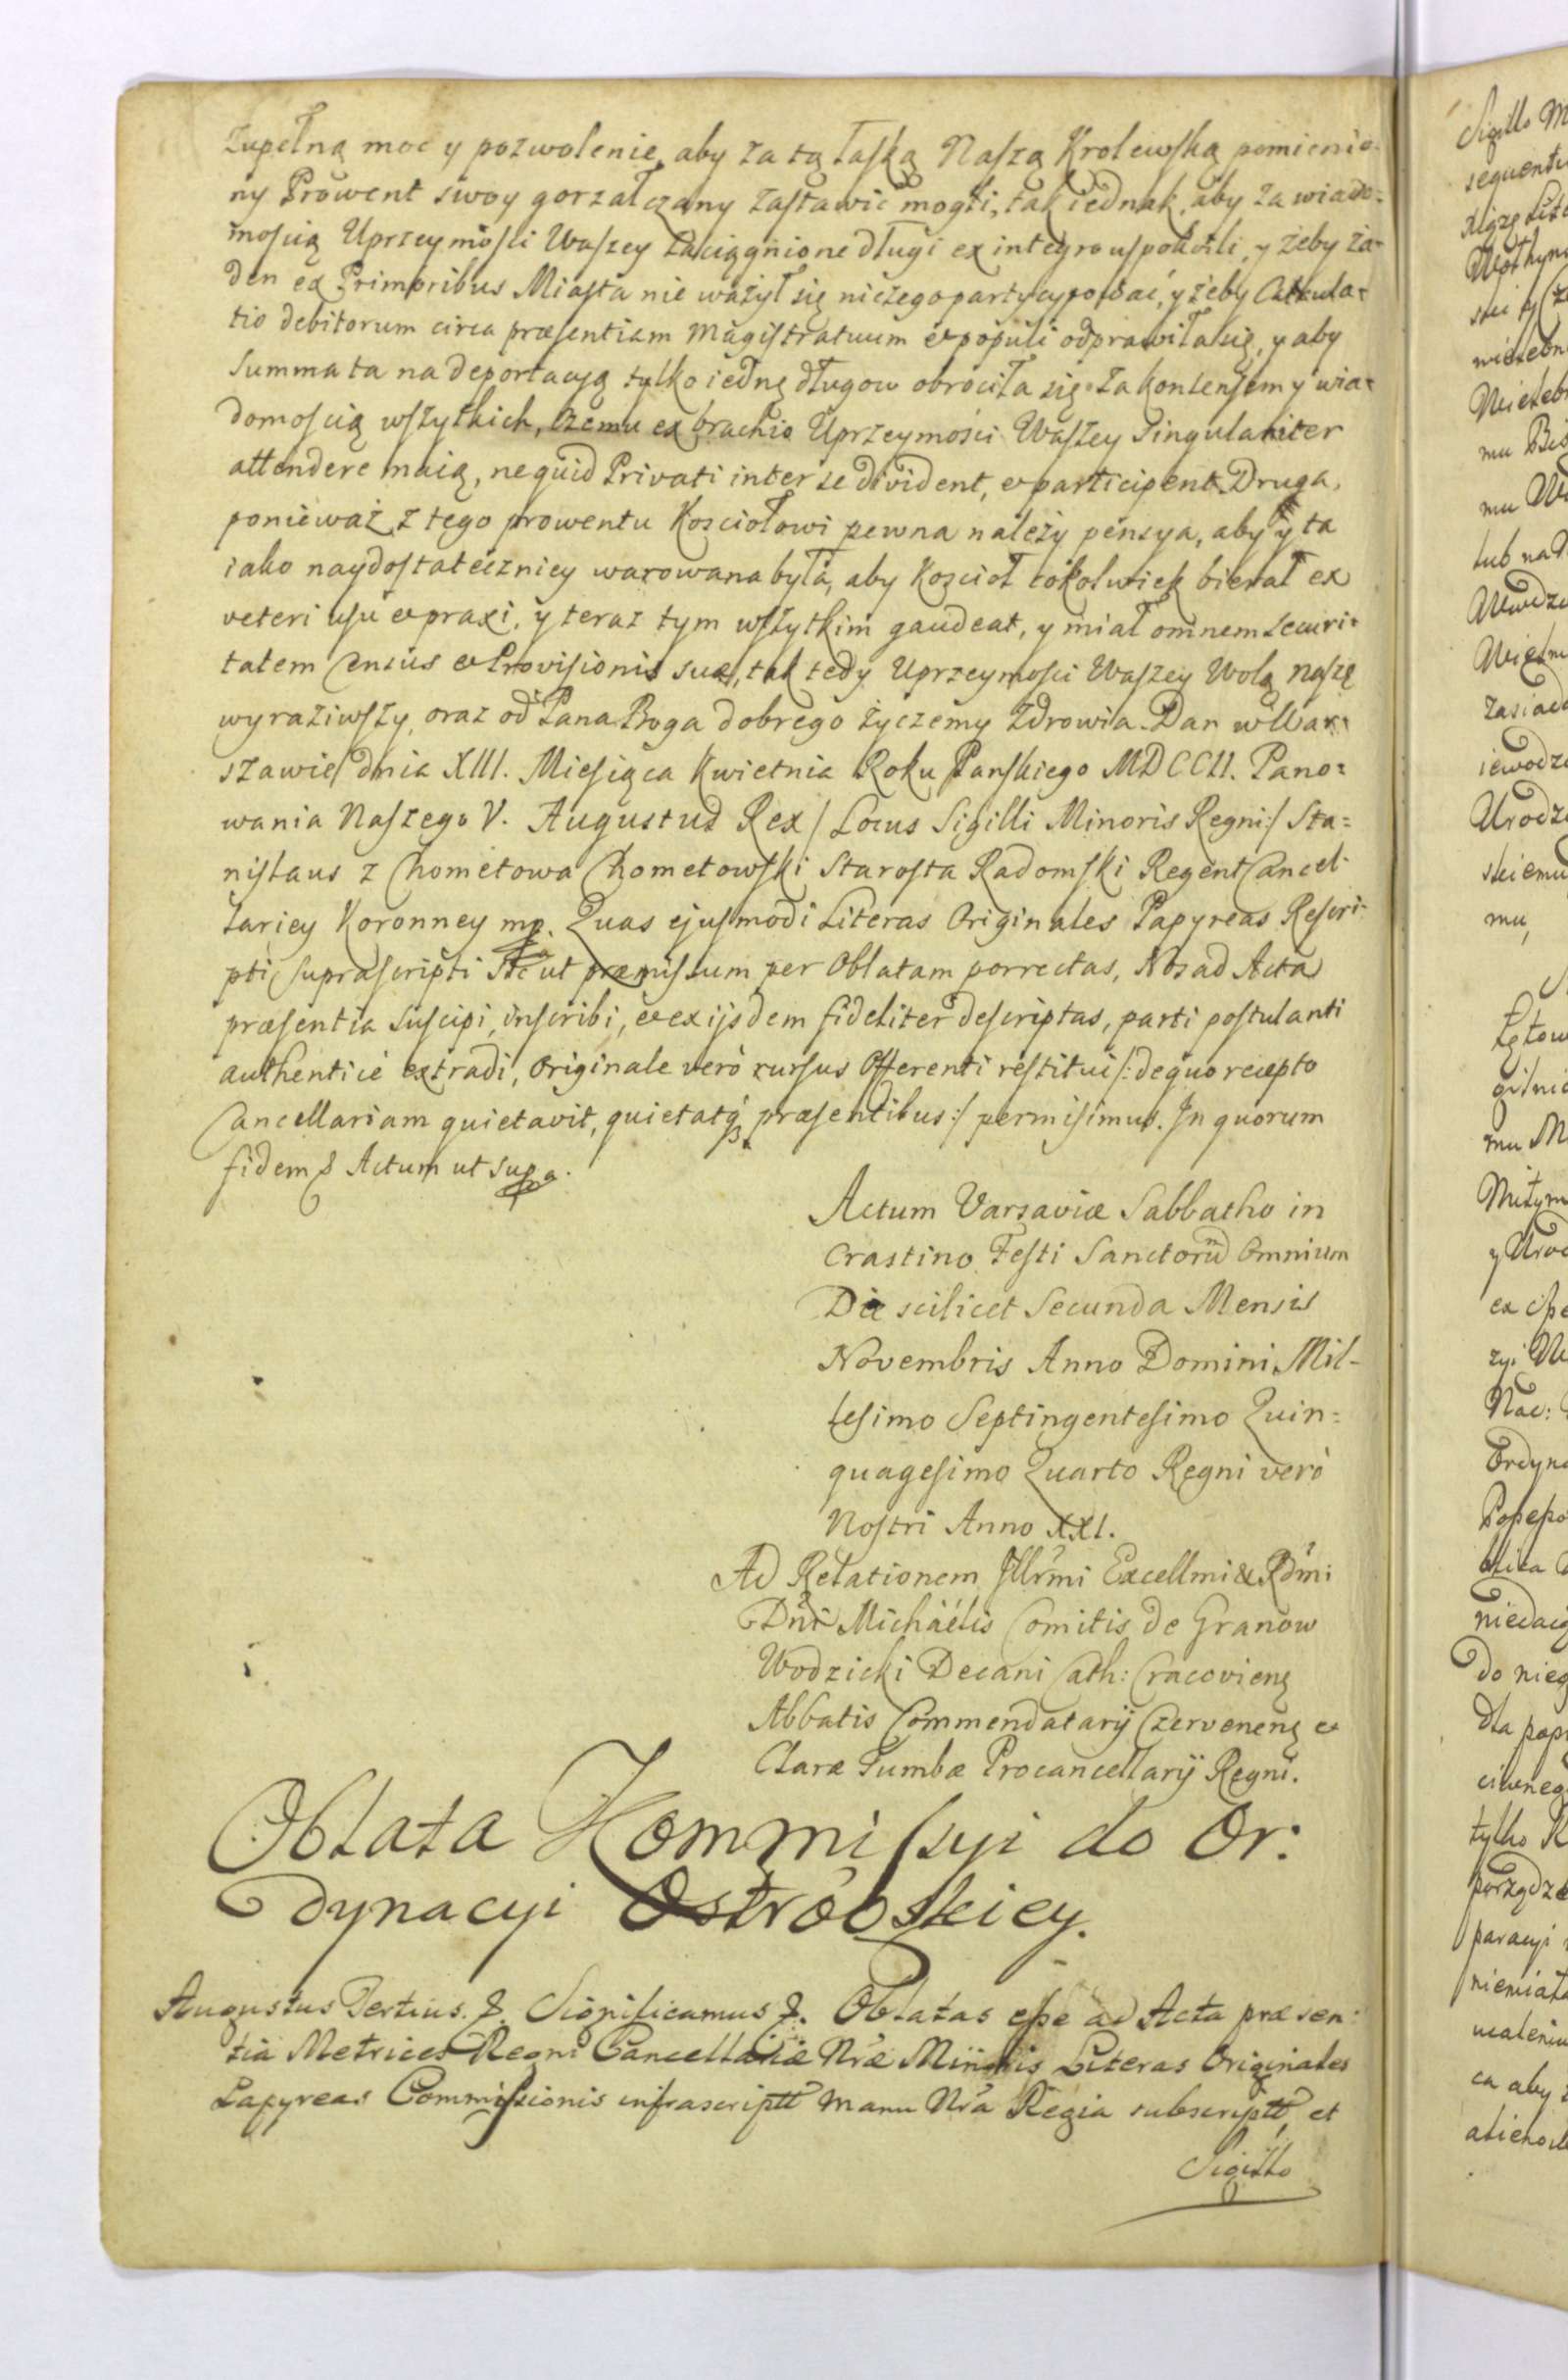 Zupełną moc y pozwolenie, aby za tą łaſką Naſzą Krolewſką pomienio-
ny Prowent swoy gorzałczany zaſtawić mogli, tak iednak, aby za wiado-
moſcią Uprzeymoſci Waſzey zaciągnione długi ex integro uſpokoili, y żeby ża-
den ex Primoribus Miaſta nie ważył się niczego partycypować, y żeby Calcula-
tio debitorum circa præſentiam Magiſtratuum & populi odprawiła się, y aby
Summa ta na deportacyą tylko iednę długow obrociła się za konſenſem y wia-
domoſcią wſzyſtkich, czemu ex brachio Uprzeymości Waſzey Singulariter
attendere maią, nequid Privati inter se divident, & participent. Druga,
ponieważ z tego prowentu Kosciołowi pewna należy pensya, aby y ta
iako naydoſtateczniey warowana była, aby Koscioł cokolwiek bierał ex
veteri uſu & praxi, y teraz tym wſzytkim gaudeat, y miał omnem Securi-
tatem Census & Proviſionis suæ, tak tedy Uprzeymoſci Waſzey Wolą naſzę
wyraziwſzy, oraz od Pana Boga dobrego życzemy zdrowia. Dan w War-
szawie dnia XIII. Mieſiąca Kwietnia Roku Panſkiego MDCCII. Pano-
wania Naſzego V. Augustus Rex /Locus Sigilli Minoris Regni:/ Sta-
niſlaus z Chometowa Chometowſki Staroſta Radomſki Regent Cancel-
lariey Koronney mp. Quas ejuſmodi Literas Originales Papyreas Reſcri-
pti ſupraſcripti Sic ut præmiſsum per Oblatam porrectas, Nos ad Acta
præſentia Suſcipi, inſcribi, & ex ijsdem fideliter deſcriptas, parti poſtulanti
authenticè extradi, Originale verò rurſus Offerenti reſtitui /:de quo recepto
Cancellariam quietavit, quietatq; præſentibus:/ permiſimus. In quorum
fidem & Actum ut supra.
Actum Varsaviæ Sabbatho in
Crastino Feſti Sanctorũ Omnium
Die scilicet Secunda Mensis
Novembris Anno Domini Mil-
leſimo Septingenteſimo Quin-
quageſimo Quarto Regni verò
Noſtri Anno XXI.
Ad Relationem Illrmi Excellmi & Rdmi
Dni Michaélis Comitis de Granow
Wodzicki Decani Cath: Cracovienę
Abbatis Commendatarij Czervenenę &
Claræ Tumbæ Procancellarij Regni.
Oblata Kommiſsyi do Or:
dynacyi Ostrobskiey.
Augustus Tertius. &. Significamus &. Oblatas eſse ad Acta præsen:
tia Metrices Regni Cancellariæ Nræ Minoris Literas Originales
Papyreas Commiſsionis infrascriptt manu Nrã Regia subscriptt, et
Sigillo